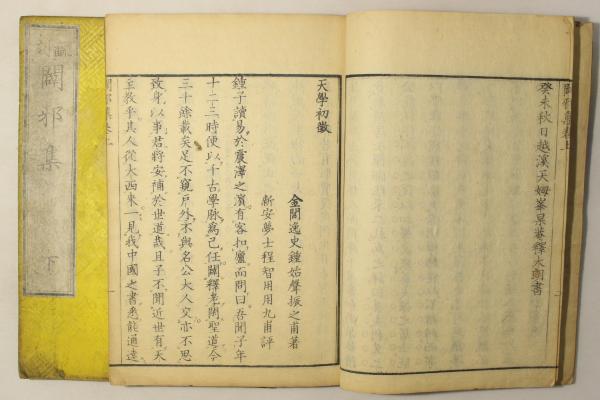 闢邪集卷上
癸未秋日越溪天姆峯杲菴釋大朗書
天學初徵
金閶逸史鍾始聲振之甫著
新安夢士程智用用九甫評
鍾子讀易於震澤之濱有客扣廬而問曰吾聞子年
十二三時便以千古學脉爲己任闢釋老闡聖道今
三十餘載矣足不窺戶外不與名公大人交亦不思
致身以事君將安補於世道哉且子不聞近世有天
主敎乎其人從大西來一見我中國之書悉能通達
闢邪集卷上
一
闢邪集 下